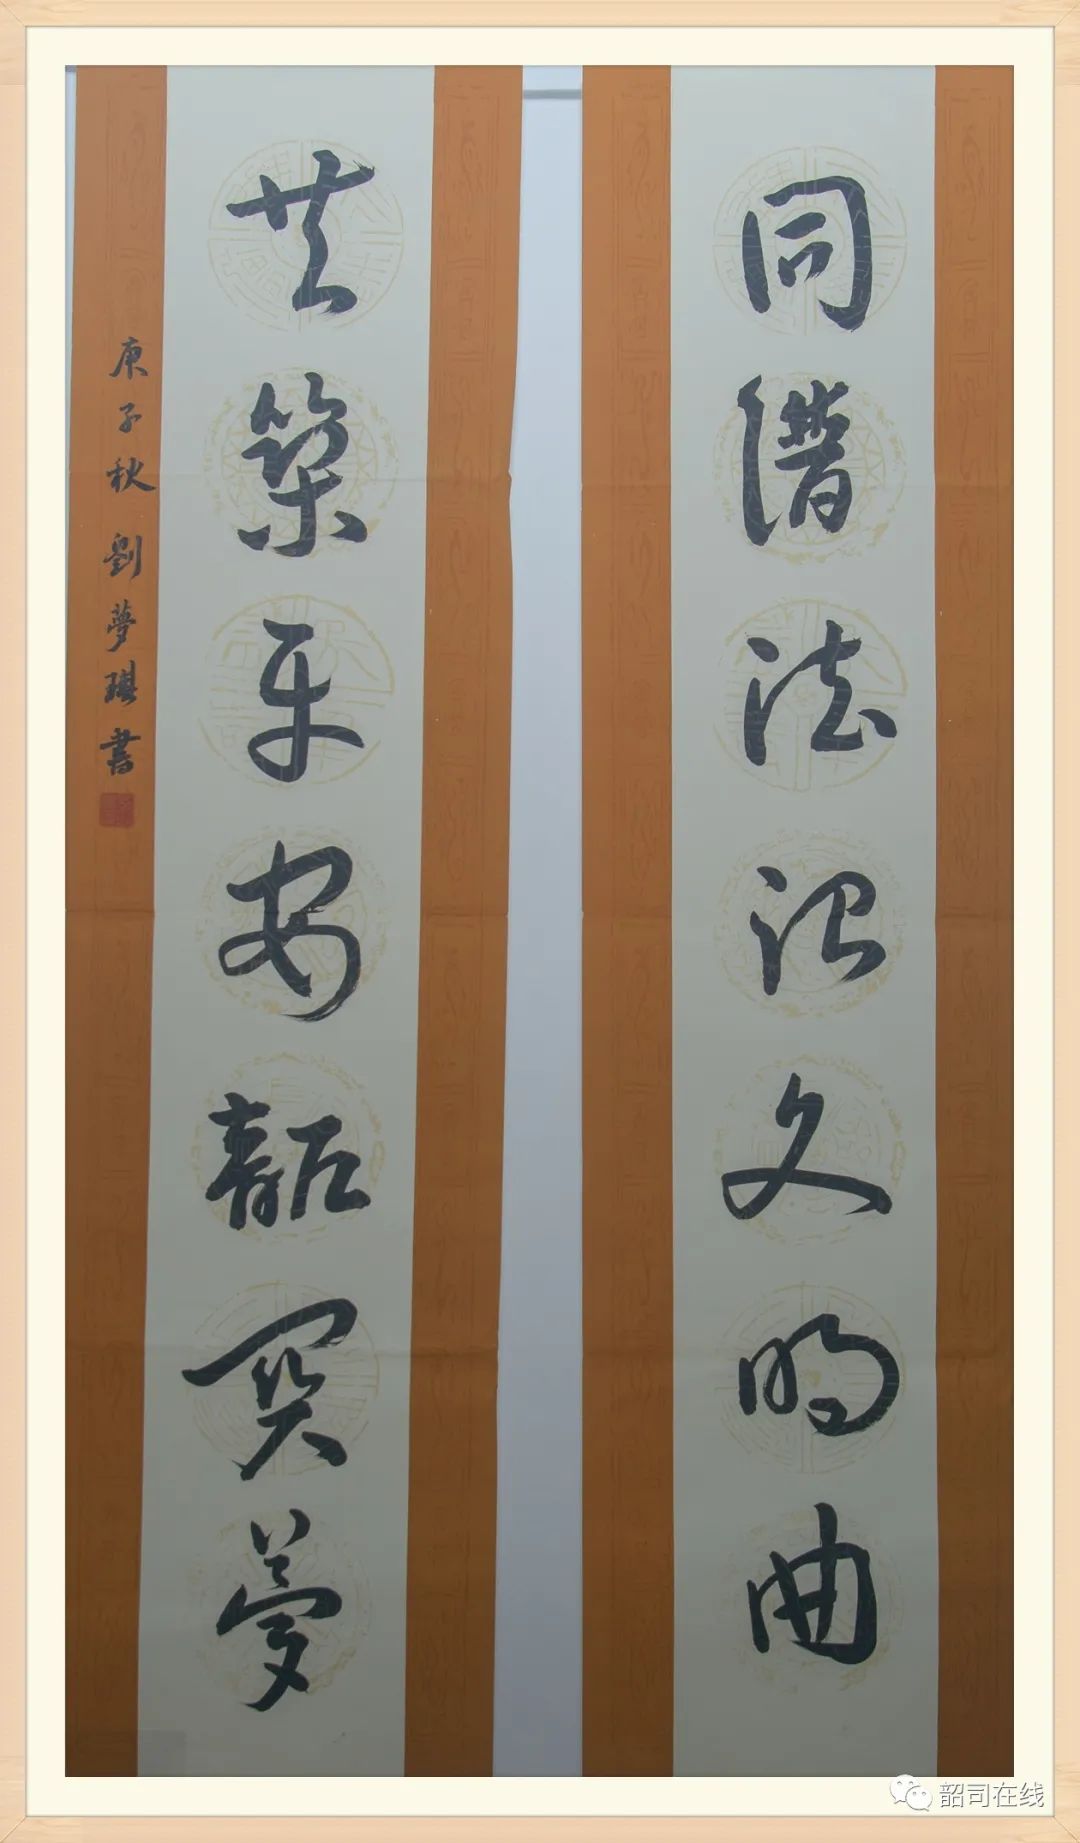 同譜法治文明曲
共築平安韶関夢
庚子秋 劉夢琪書
韶司在线